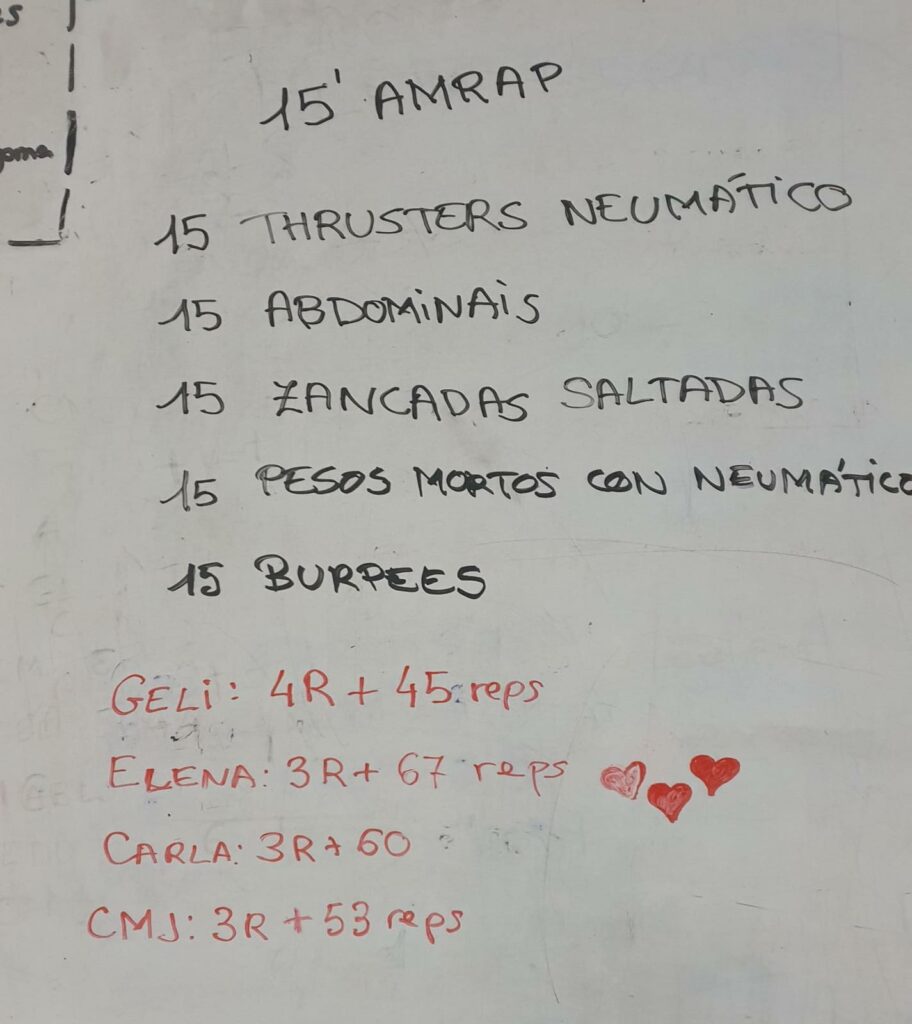 15' AMRAP
15 THRUSTERS NEUMÁTICO
15 ABDOMINAIS
15 ZANCADAS SALTADAS
15 PESOS MORTOS CON NEUMÁTICO
15 BURPEES
GELI: 4R + 45 reps
ELENA: 3R + 67 reps
CARLA: 3R + 60
CMJ: 3R + 53 reps